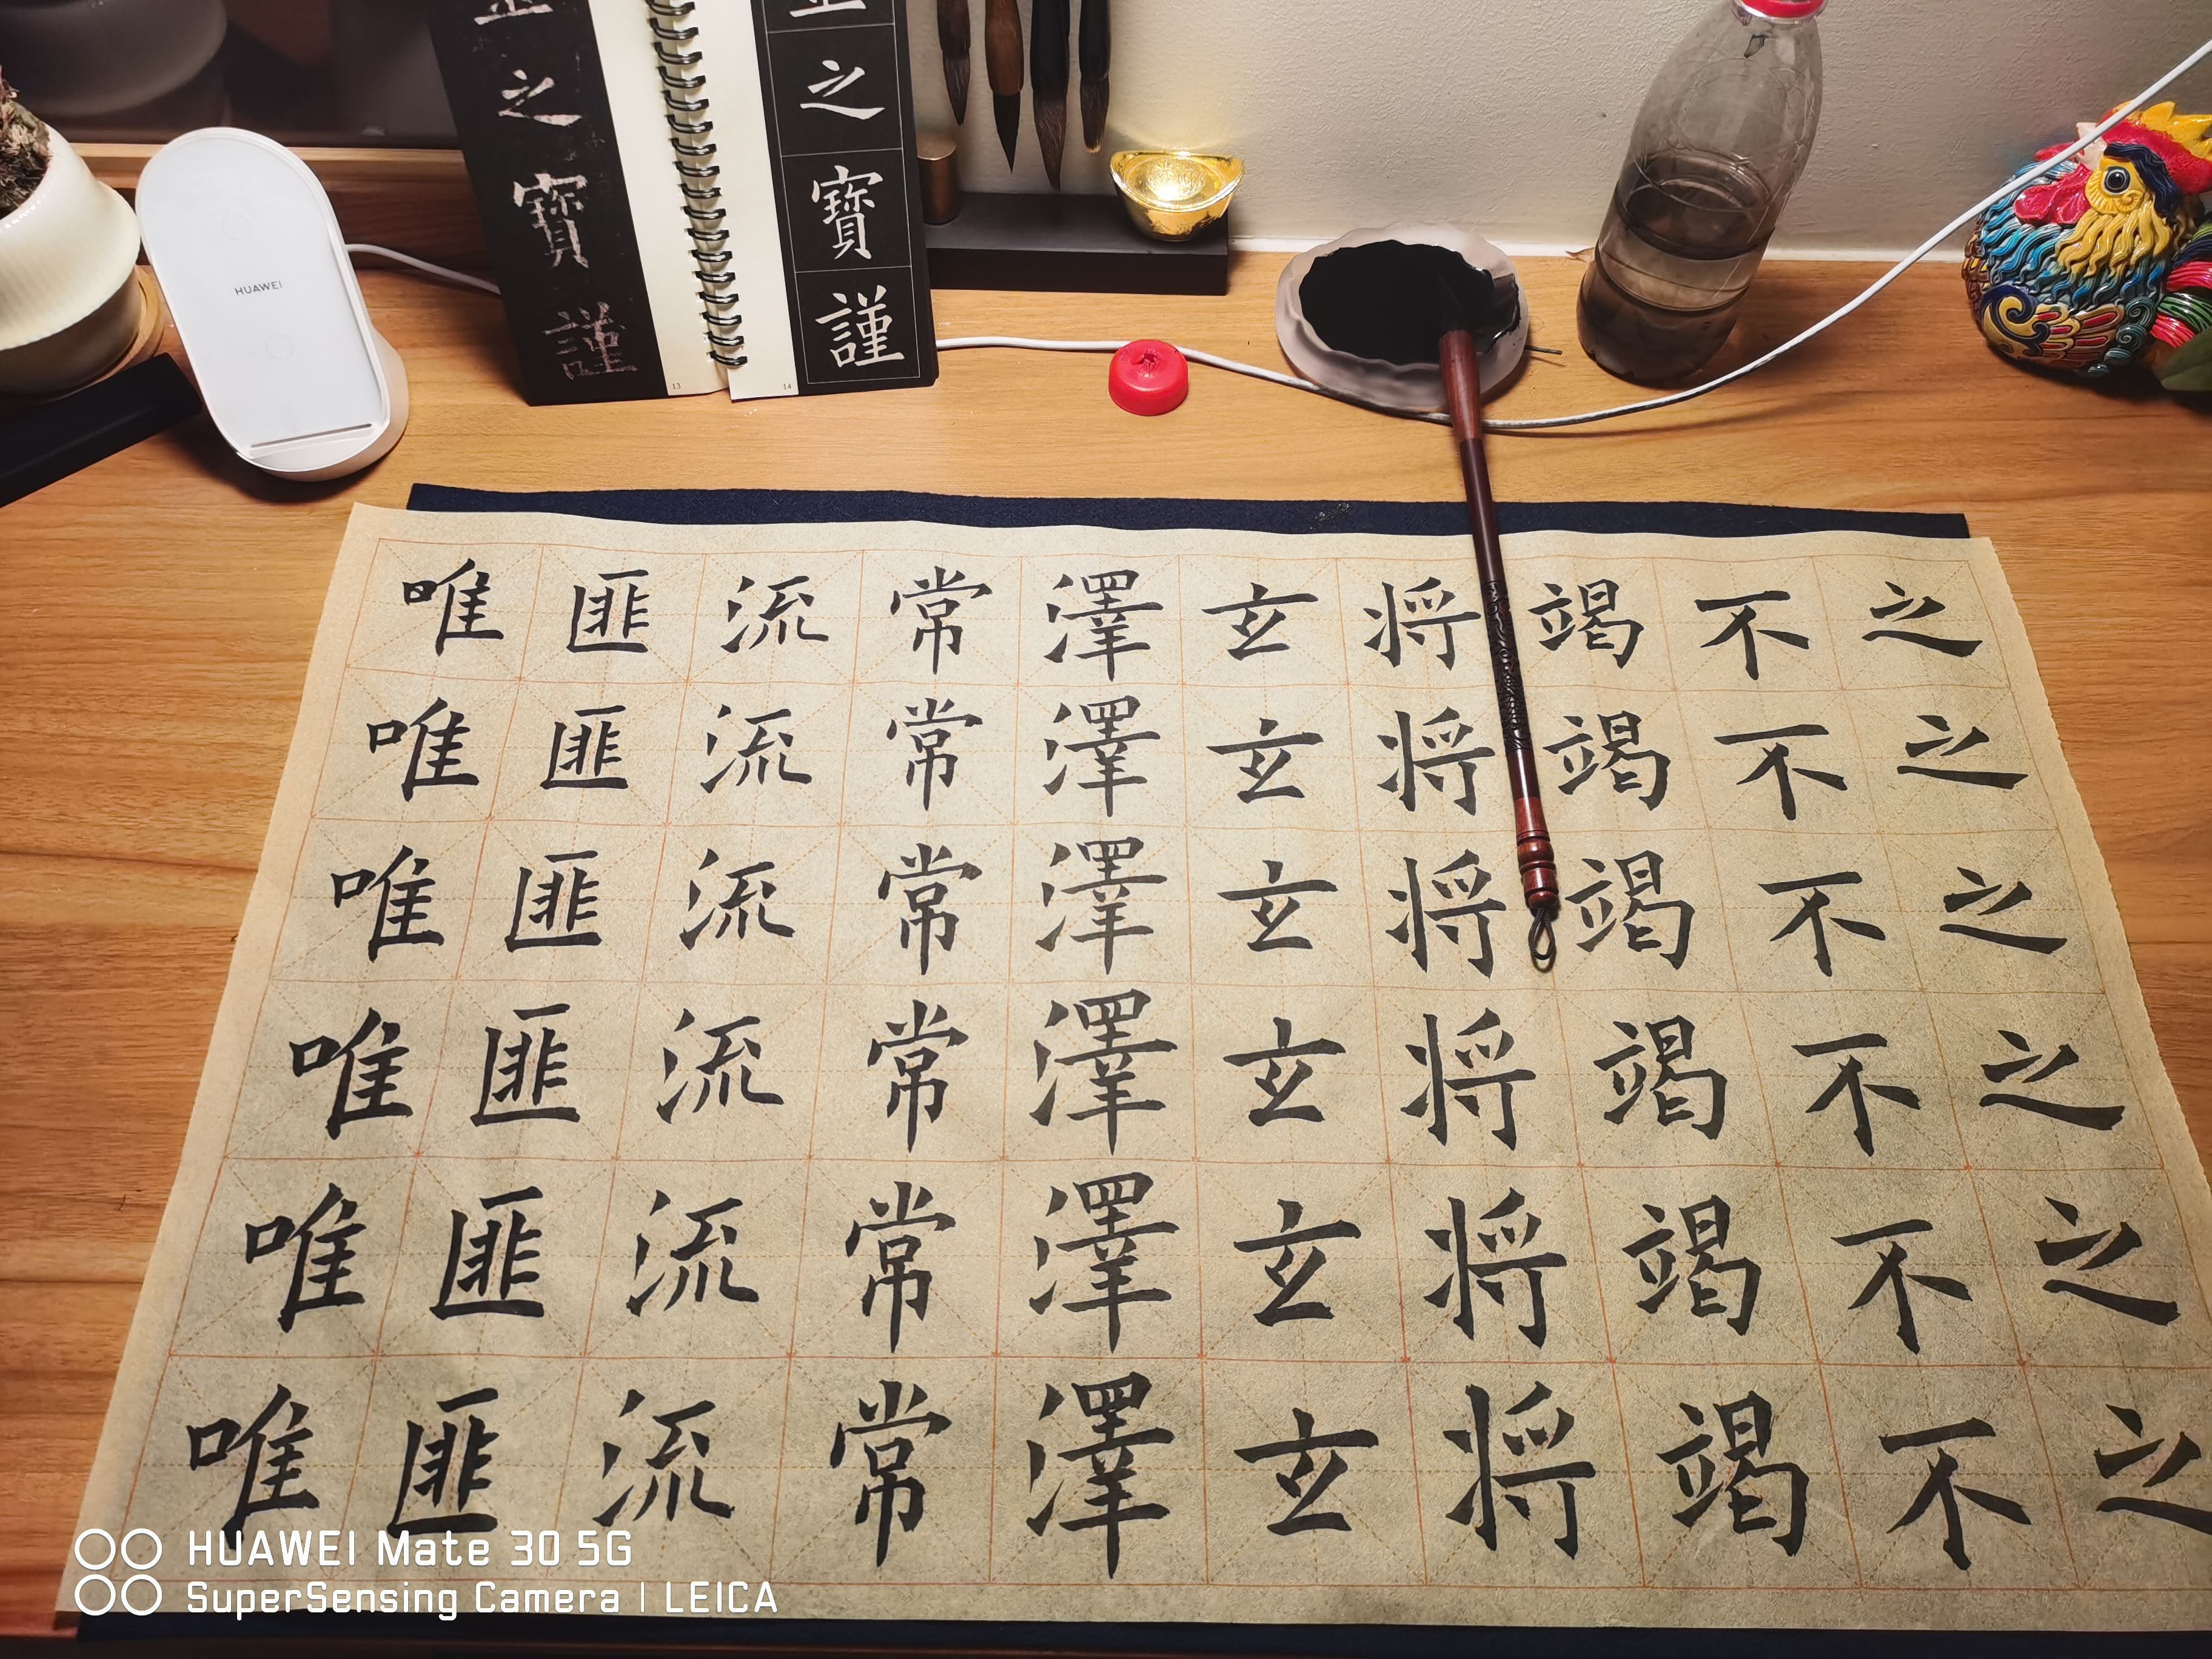 HUAWEI
之寶謹
13
之寶謹
14
之之之之之之
不不不不不不
竭竭竭竭竭竭
将将将将将将
玄玄玄玄玄玄
澤澤澤澤澤澤
常常常常常常
流流流流流流
匪匪匪匪匪匪
唯唯唯唯唯唯
HUAWEI Mate 30 5G
SuperSensing Camera | LEICA